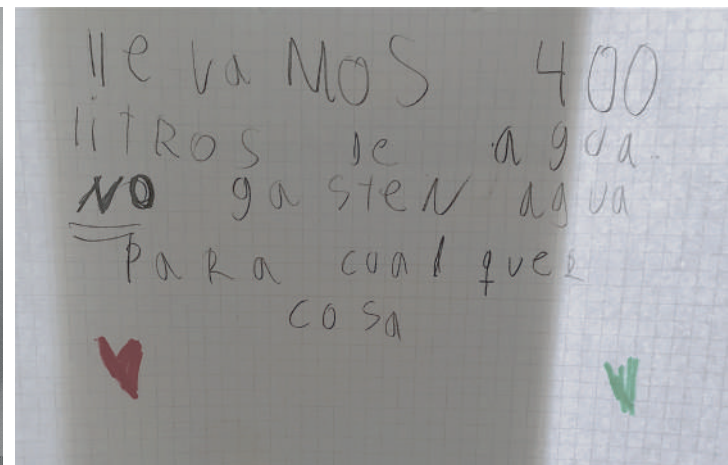 lle va MOS 400
liTROS De agua.
NO ga steN agua
PaRa cual queR
cosa